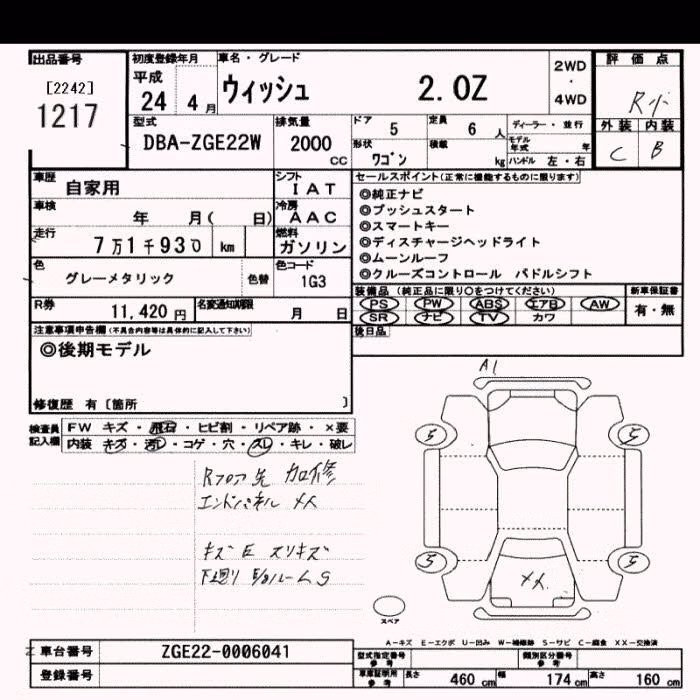 出品番号 初度登録年月 車名・グレード 2WD・4WD 評価点
[2242] 1217 平成 24 4月 ウィッシュ 2.0Z R小
外装 内装
C B
型式 排気量 ドア 5 定員 6人 ディーラー・並行
DBA-ZGE22W 2000cc 形状 ワゴン 積載 kg モデル年式 年 ハンドル 左・右
車歴 自家用 シフト IAT
車検 年 月( 日) 冷房 AAC
走行 7万1千930 km 燃料 ガソリン
色 グレーメタリック 色替 色コード 1G3
R券 11,420円 名変通知期限 月 日
セールスポイント(正常に機能するものに限ります)
◎純正ナビ
◎プッシュスタート
◎スマートキー
◎ディスチャージヘッドライト
◎ムーンルーフ
◎クルーズコントロール パドルシフト
装備品(純正品に限り○をつけてください) 新車保証書
PS PW ABS エアB AW 有・無
SR ナビ TV カワ
後日品
注意事項申告欄(不具合内容等は具体的に記入して下さい)
◎後期モデル
修復歴 有[箇所 ]
検査員記入欄 FW キズ・飛石・ヒビ割・リペア跡・×要
内装 キズ・汚レ・コゲ・穴・スレ・キレ・破レ
Rフロア先 加修
エンドパネル メス
キズ E スリキズ
下廻り E/gルーム S
A1
5 5
5 5
××
スペア
A-キズ E-エクボ U-凹み W-補修跡 S-サビ C-腐食 XX-交換済
車台番号 ZGE22-0006041
登録番号
型式指定番号 参考 類別区分番号 参考
車庫証明用 参考 長さ 460cm 幅 174cm 高さ 160cm